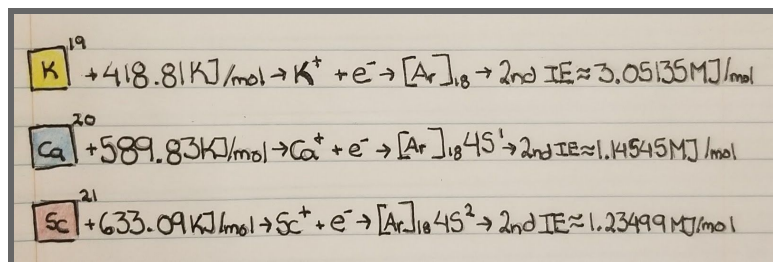 K 19 +418.81KJ/mol → K⁺ + e⁻ → [Ar]₁₈ → 2nd IE ≈ 3.05135MJ/mol
Ca 20 +589.83KJ/mol → Ca⁺ + e⁻ → [Ar]₁₈4S¹ → 2nd IE ≈ 1.14545MJ/mol
Sc 21 +633.09KJ/mol → Sc⁺ + e⁻ → [Ar]₁₈4S² → 2nd IE ≈ 1.23499MJ/mol